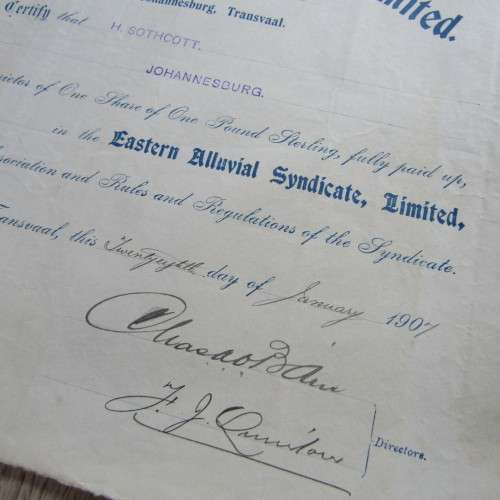 Limited.
Johannesburg, Transvaal.
Certify that H. SOTHCOTT.
JOHANNESBURG.
of One Share of One Pound Sterling, fully paid up,
in the Eastern Alluvial Syndicate, Limited,
and Rules and Regulations of the Syndicate.
Transvaal, this Twentyeighth day of January 1907
F. J.
Directors.